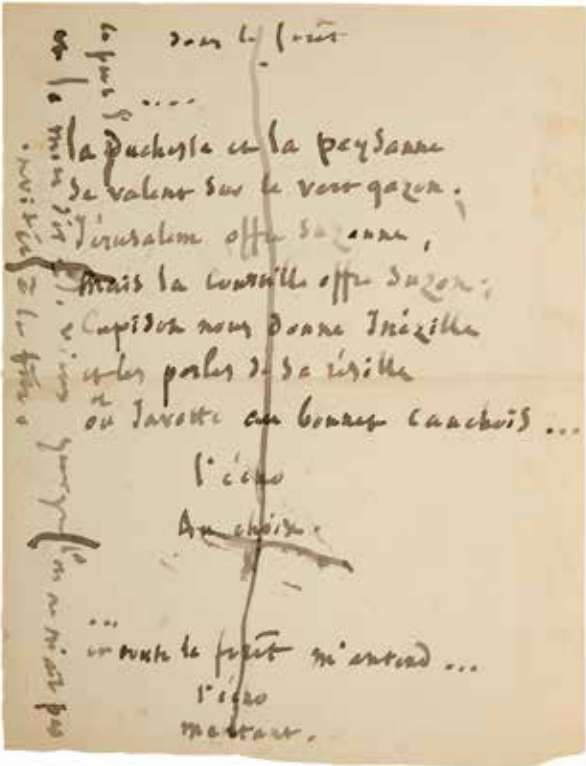 dans la forêt
....
la Duchesse et la paysanne
Se valent sur le vert gazon ;
Jérusalem offre Suzanne,
Mais la Courtille offre Suzon ;
Cupidon nous donne Inézille
et les perles de sa résille
ou Javotte au bonnet cauchois ...
l'écho
Au choix.
...
et toute la forêt m'entend ...
l'écho
mentant.
et la mort dit viens pas
invitée à la fête.